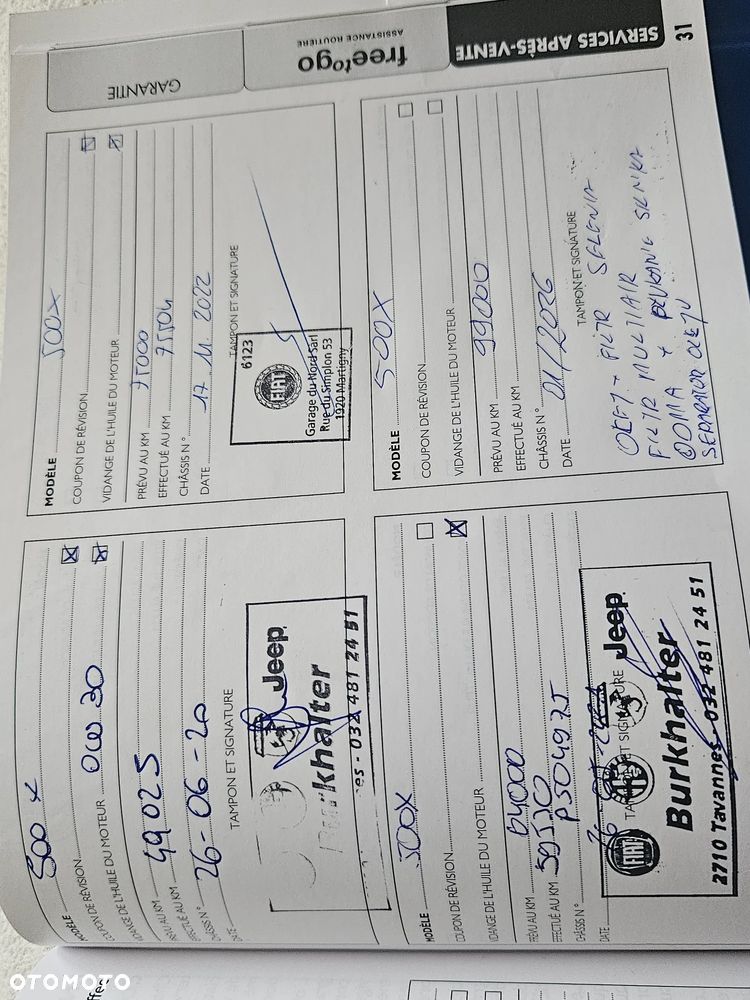 SERVICES APRÈS-VENTE
31
freetogo
ASSISTANCE ROUTIÈRE
GARANTIE
MODÈLE 500 X
COUPON DE RÉVISION
VIDANGE DE L'HUILE DU MOTEUR 0W30
PRÉVU AU KM
EFFECTUÉ AU KM 49025
CHÂSSIS N°
DATE 26-06-20
TAMPON ET SIGNATURE
Jeep
Burkhalter
es - 032 481 24 51
MODÈLE 500X
COUPON DE RÉVISION
VIDANGE DE L'HUILE DU MOTEUR
PRÉVU AU KM 75000
EFFECTUÉ AU KM 75504
CHÂSSIS N°
DATE 17.11.2022
TAMPON ET SIGNATURE
6123
FIAT
Garage du Nord Sàrl
Rue du Simplon 53
1920 Martigny
MODÈLE 500X
COUPON DE RÉVISION
VIDANGE DE L'HUILE DU MOTEUR
PRÉVU AU KM 64000
EFFECTUÉ AU KM 59530
CHÂSSIS N° P504975
DATE
TAMPON ET SIGNATURE
FIAT
Jeep
Burkhalter
2710 Tavannes - 032 481 24 51
MODÈLE 500X
COUPON DE RÉVISION
VIDANGE DE L'HUILE DU MOTEUR
PRÉVU AU KM 99000
EFFECTUÉ AU KM
CHÂSSIS N°
DATE 01/2026
TAMPON ET SIGNATURE
OLEJ + FILTR SELENIA
FILTR MULTIAIR
ODMA + PŁUKANIE SILNIKA
SEPARATOR OLEJU
OTOMOTO